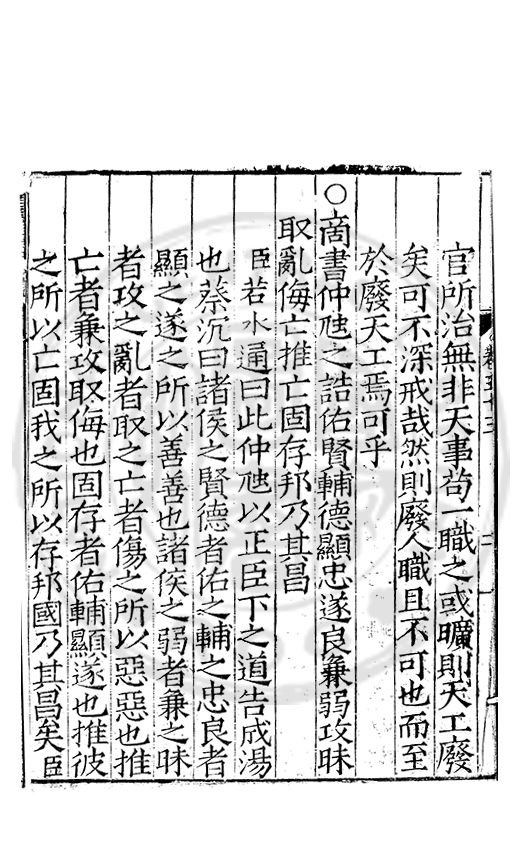 官所治無非天事苟一職之或曠則天工廢
矣可不深戒哉然則廢人職且不可也而至
於廢天工焉可乎
○商書仲虺之誥佑賢輔德顯忠遂良兼弱攻昧
取亂侮亡推亡固存邦乃其昌
臣若水通曰此仲虺以正臣下之道告成湯
也蔡沉曰諸侯之賢德者佑之輔之忠良者
顯之遂之所以善善也諸侯之弱者兼之昧
者攻之亂者取之亡者傷之所以惡惡也推
亡者兼攻取侮也固存者佑輔顯遂也推彼
之所以亡固我之所以存邦國乃其昌矣臣